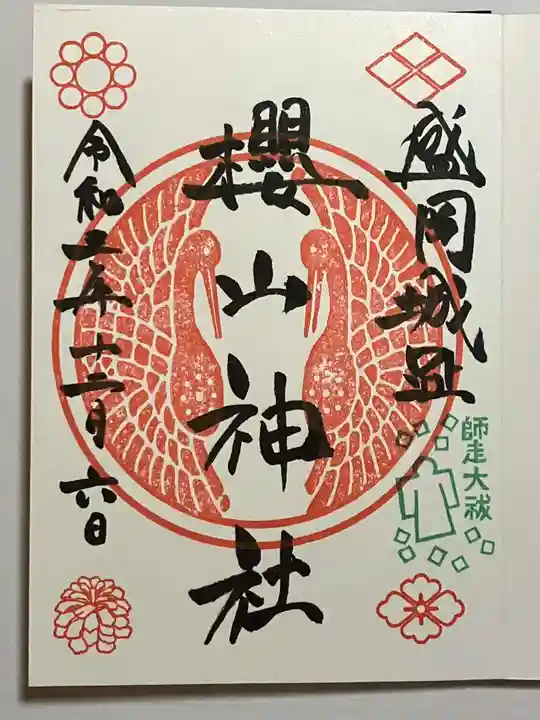 盛岡城址
師走大祓
櫻山神社
令和年十二月六日